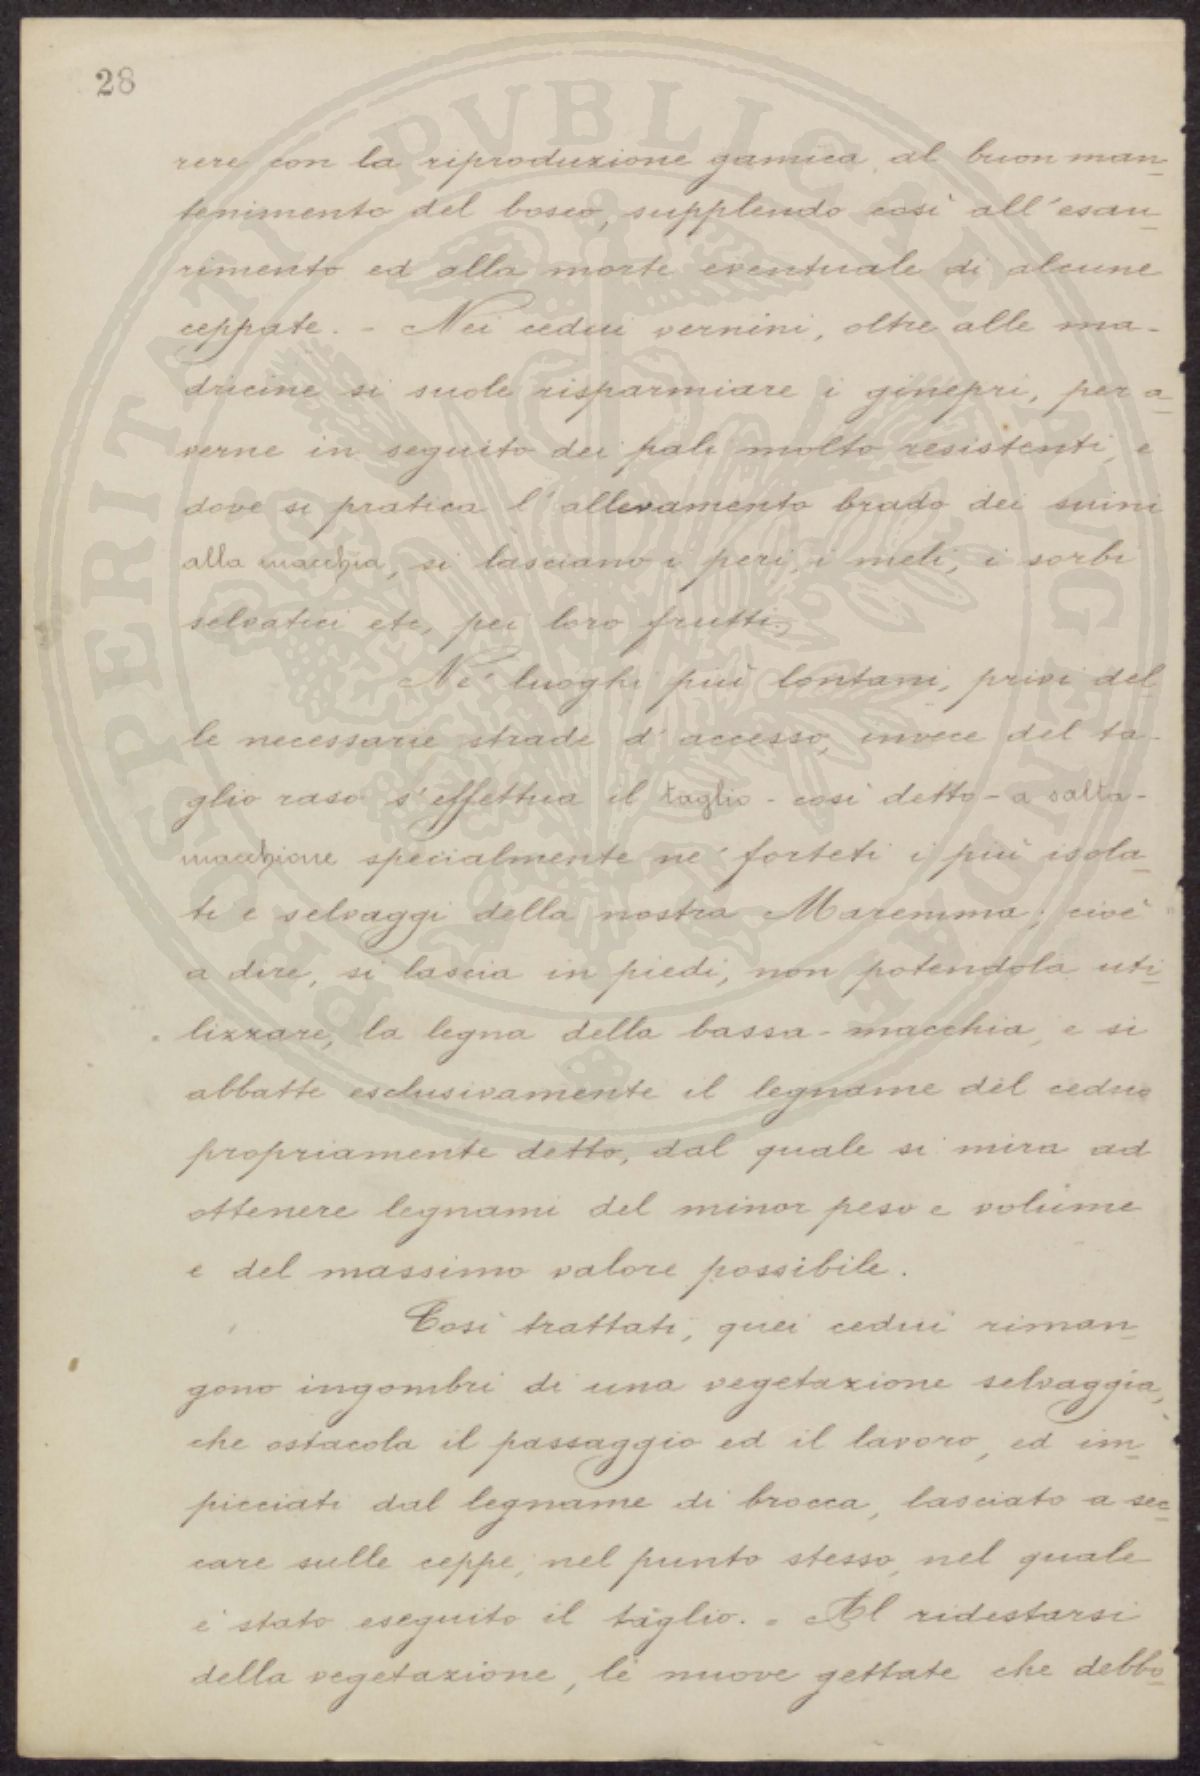 28
rere con la riproduzione gamica al buon man-
tenimento del bosco, supplendo così all'esau-
rimento ed alla morte eventuale di alcune
ceppate. - Nei cedui vernini, oltre alle ma-
dricine si suole risparmiare i ginepri, per a-
verne in seguito dei pali molto resistenti, e
dove si pratica l'allevamento brado dei suini
alla macchia, si lasciano i peri, i meli, i sorbi
selvatici etc, pei loro frutti.
Ne' luoghi più lontani, privi del
le necessarie strade d'accesso, invece del ta-
glio raso s'effettua il taglio - così detto - a salta-
macchione specialmente ne' forteti i più isola-
ti e selvaggi della nostra Maremma; cioè
a dire, si lascia in piedi, non potendola uti-
lizzare, la legna della bassa-macchia, e si
abbatte esclusivamente il legname del ceduo
propriamente detto, dal quale si mira ad
ottenere legnami del minor peso e volume
e del massimo valore possibile.
Così trattati, quei cedui riman-
gono ingombri di una vegetazione selvaggia,
che ostacola il passaggio ed il lavoro, ed im-
picciati dal legname di brocca, lasciato a sec-
care sulle ceppe, nel punto stesso, nel quale
è stato eseguito il taglio. - Al ridestarsi
della vegetazione, le nuove gettate che debbo-
PROSPERITATI PVBLICAE AVGENDAE